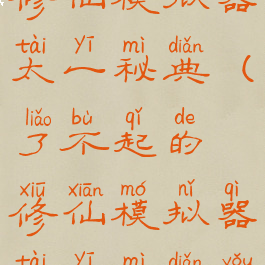 修仙模拟器
tài yī mì diǎn
太一秘典（
liǎo bù qǐ de
了不起的
xiū xiān mó nǐ qì
修仙模拟器
tài yī mì diǎn yǒu